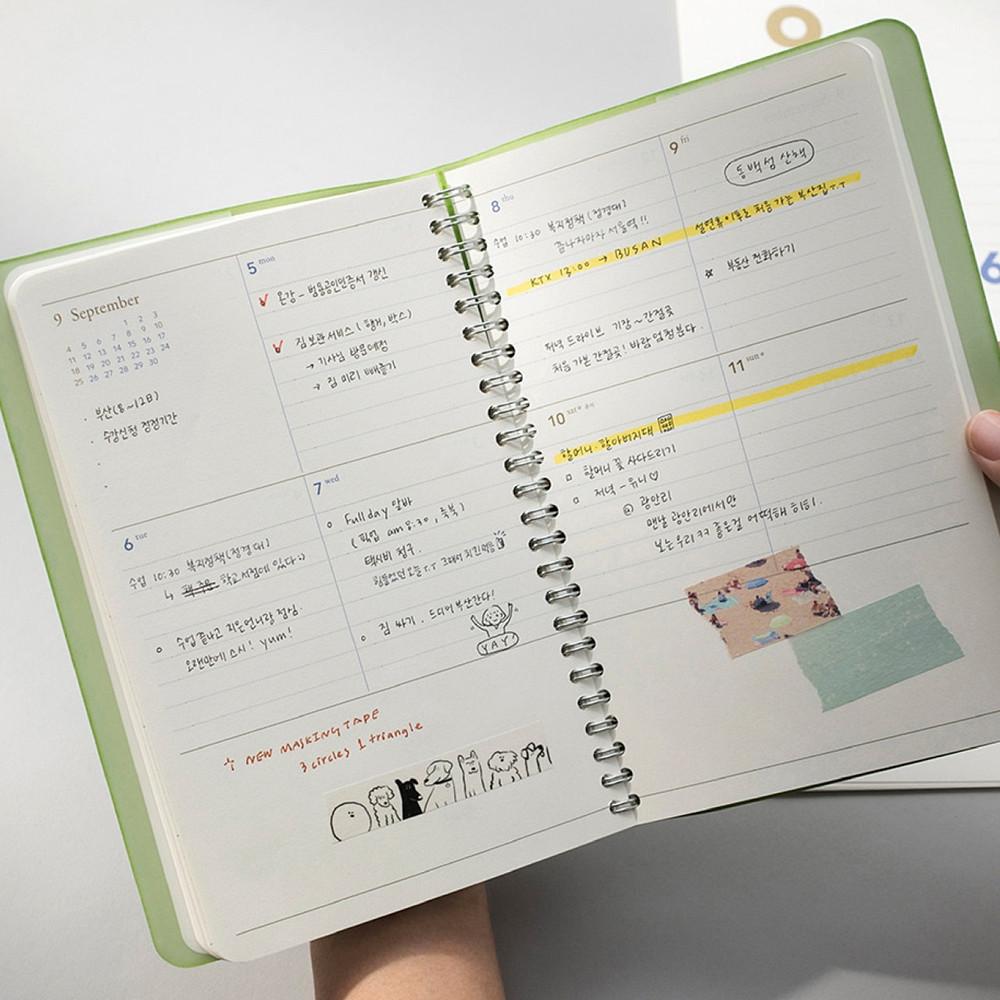 9 September
1 2 3
4 5 6 7 8 9 10
11 12 13 14 15 16 17
18 19 20 21 22 23 24
25 26 27 28 29 30
· 부산(8~12日)
· 수강신청 정정기간
·
·
5 mon
인강 - 범용공인인증서 갱신
짐 보관 서비스 (행거, 박스)
→ 기사님 방문예정
→ 짐 미리 빼놓기
6 tue
수업 10:30 복지정책(정경대)
↳ 학교 서점에 있다
수업 끝나고 지은언니랑 점심.
오랜만에 스시! yum!
7 wed
Full day 알바
(픽업 am 8:30, 축복)
택시비 청구.
힘들었던 오늘 T.T 그래서 치킨먹음
짐 싸기. 드디어 부산간다!
YAY!
+ NEW MASKING TAPE
3 circles 1 triangle
8 thu
수업 10:30 복지정책(정경대)
끝나자마자 서울역!!
KTX 13:00 → BUSAN
저녁 드라이브 기장~간절곶
처음 가본 간절곶! 바람 엄청분다.
9 fri
동백섬 산책
설연휴 이후로 처음 가는 부산집 T.T
☆ 부동산 전화하기
10 sat
할머니·할아버지댁
□ 할머니 꽃 사다드리기
□ 저녁 - 유니♡
@ 광안리
맨날 광안리에서만
보는 우리 ㅋㅋ 좋은걸 어떡해 히히.
11 sun
6